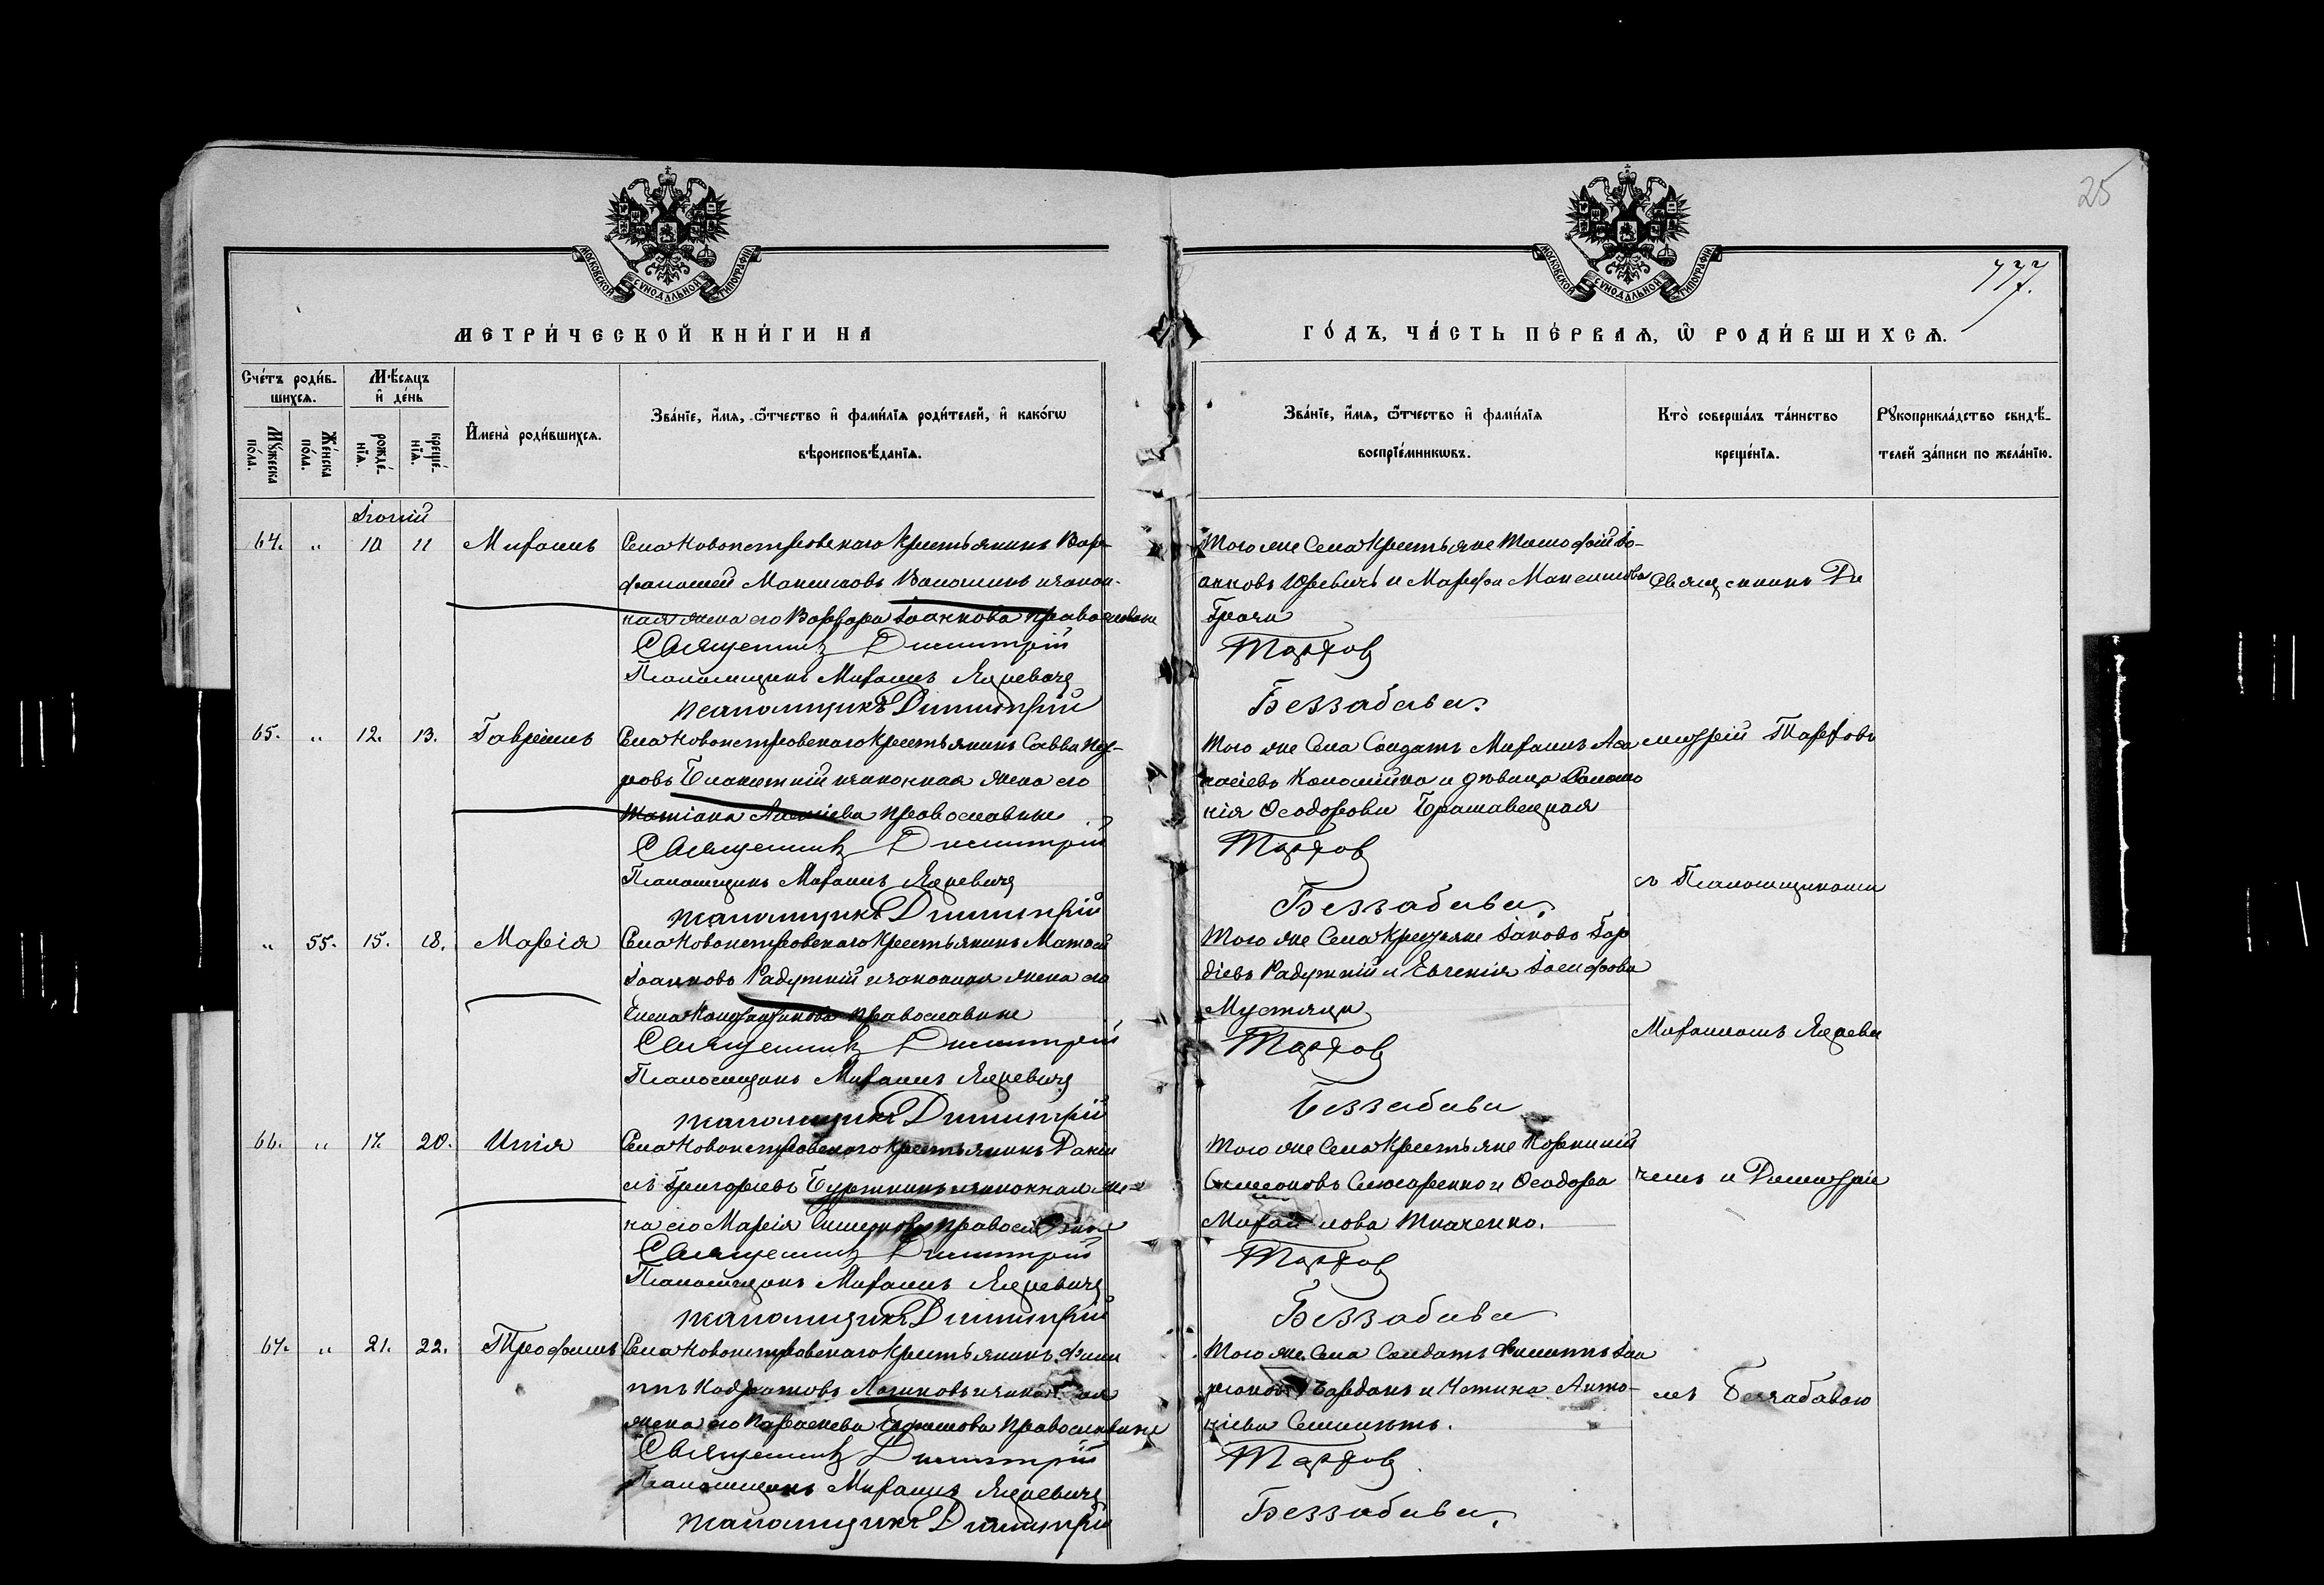 25
777.
МОСКОВСКОЙ СѴНОДАЛЬНОЙ ТИПОГРАФІИ
МОСКОВСКОЙ СѴНОДАЛЬНОЙ ТИПОГРАФІИ
МЕТРИ́ЧЕСКОЙ КНИ́ГИ НА
ГО́ДЪ, ЧА́СТЬ ПЕ́РВАѦ, Ѿ РОДИ́ВШИХСѦ.
Сче́тъ роди́в-
шихсѧ.
Мꙋ́жеска
по́ла.
Же́нска
по́ла.
Мѣ́сѧцъ
и҆ де́нь
рожде́-
нїѧ.
креще́-
нїѧ.
И҆мена̀ роди́вшихсѧ.
Зва́нїе, и҆́мѧ, ѻ҆́тчество и҆ фами́лїѧ роди́телей, и҆ како́гѡ
вѣроисповѣ́данїѧ.
Зва́нїе, и҆́мѧ, ѻ҆́тчество и҆ фами́лїѧ
воспрїе́мникѡвъ.
Кто̀ соверша́лъ та́инство
креще́нїѧ.
Рꙋкоприкла́дство свидѣ́-
телей за́писи по жела́нїю.
Іюній
64. „ 10 11 Михаилъ
Села Новопетровскаго Крестьянинъ Вар-
фаломей Максимовъ Волошинъ и закон-
ная жена его Варвара Іоаннова православные
Священникъ Димитрій
Псаломщикъ Михаилъ Яцкевичъ
псаломщикъ Димитрій
Того же Села Крестьяне Тимофей Іо-
анновъ Юревичъ и Марфа Максимова
Грачи
Тарховъ
Беззабава.
Священникъ Ди
65. „ 12. 13. Гавріилъ
Села Новопетровскаго Крестьянинъ Савва Пет-
ровъ Блакитній и законная жена его
Татіана Алексіева православные
Священникъ Димитрій
Псаломщикъ Михаилъ Яцкевичъ
псаломщикъ Димитрій
Того же Села Солдатъ Михаилъ Афа
насіевъ Коломійка и девица Соломо
нія Феодорова Брашавецкая
Тарховъ
Беззабава.
митрій Тарховъ
съ Псаломщиками
„ 55. 15. 18. Марія
Села Новопетровскаго Крестьянинъ Матѳей
Іоанновъ Радужній и законная жена его
Елена Константинова православные
Священникъ Димитрій
Псаломщикъ Михаилъ Яцкевичъ
псаломщикъ Димитрій
Того же Села Крестьяне Іаковъ Гор
діевъ Радужній и Евгенія Іосифова
Мустяца
Тарховъ
Беззабава
Михаиломъ Яцкеви
66. „ 17. 20. Илія
Села Новопетровскаго Крестьянинъ Дании
лъ Григоріевъ Буряткинъ и законная же-
на его Марія православные
Священникъ Димитрій
Псаломщикъ Михаилъ Яцкевичъ
псаломщикъ Димитрій
Того же Села Крестьяне Корнилій
Симеоновъ Слюсаренко и Феодора
Михаилова Ткаченко.
Тарховъ
Беззабава
чемъ и Димитріе
67. „ 21. 22. Трофимъ
Села Новопетровскаго Крестьянинъ Фили
ппъ Кодратовъ Логиновъ и законная
жена его Параскева Ефимова православные
Священникъ Димитрій
Псаломщикъ Михаилъ Яцкевичъ
псаломщикъ Димитрій
Того же Села Солдатъ Филиппъ
Барданъ и Устина Анто-
ніева
Тарховъ
Беззабава.
мъ Беззабавою